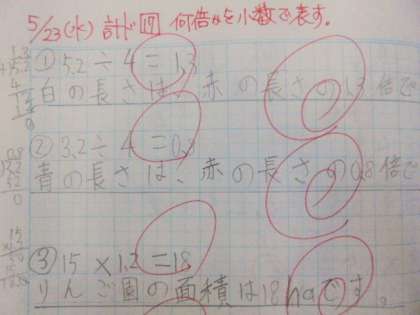 5/23(水) 計ド19 何倍かを小数で表す。
① 5.2÷4=1.3
白の長さは、赤の長さの1.3倍で
② 3.2÷4=0.8
青の長さは、赤の長さの0.8倍で
③ 15×1.2=18
りんご園の面積は18haです。